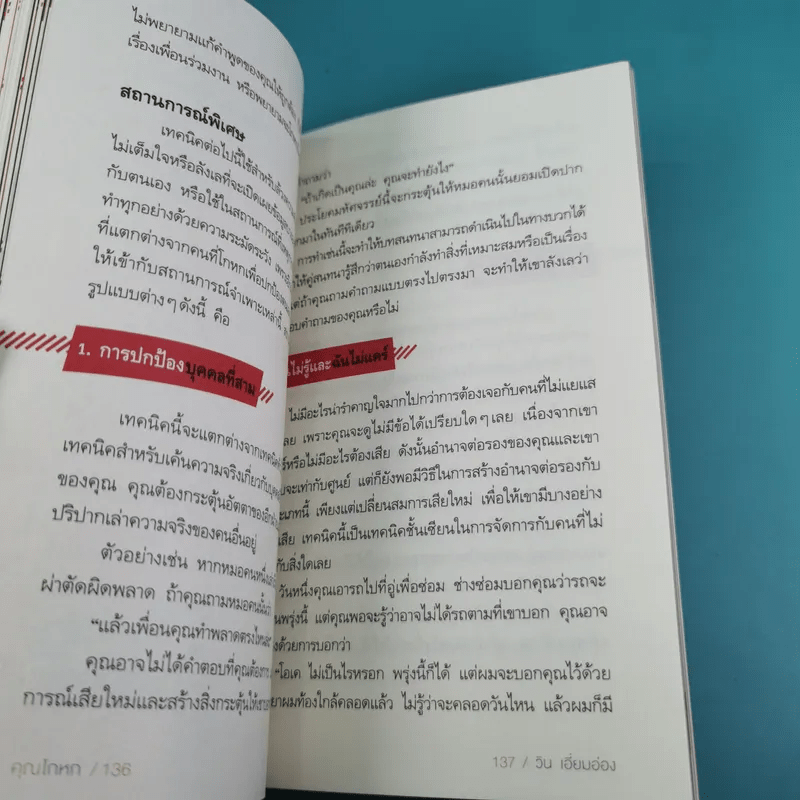 ไม่พยายามแก้คำพูดของคุณให้ถูกต้อง
เรื่องเพื่อนร่วมงาน หรือพยายาม
สถานการณ์พิเศษ
เทคนิคต่อไปนี้ใช้สำหรับล้วง
ไม่เต็มใจหรือลังเลที่จะเปิดเผยข้อมูล
กับตนเอง หรือใช้ในสถานการณ์ที่
ทำทุกอย่างด้วยความระมัดระวัง เพราะ
ที่แตกต่างจากคนที่โกหกเพื่อปกป้อง
ให้เข้ากับสถานการณ์จำเพาะเหล่านี้
รูปแบบต่างๆ ดังนี้ คือ
1. การปกป้องบุคคลที่สาม
เทคนิคนี้จะแตกต่างจากเทคนิค
เทคนิคสำหรับเค้นความจริงเกี่ยวกับ
ของคุณ คุณต้องกระตุ้นอัตตาของอีก
ปริปากเล่าความจริงของคนอื่นอยู่
ตัวอย่างเช่น หากหมอคนหนึ่ง
ผ่าตัดผิดพลาด ถ้าคุณถามหมอคนนั้นว่า
“แล้วเพื่อนคุณทำพลาดตรงไหน
คุณอาจไม่ได้คำตอบที่คุณต้องการ
การณ์เสียใหม่และสร้างสิ่งกระตุ้นให้
คุณโกหก / 136
ถามว่า
“ถ้าเกิดเป็นคุณล่ะ คุณจะทำยังไง”
ประโยคมหัศจรรย์นี้จะกระตุ้นให้หมอคนนั้นยอมเปิดปาก
มาในทันทีทีเดียว
การทำเช่นนี้จะทำให้บทสนทนาสามารถดำเนินไปในทางบวกได้
ให้คู่สนทนารู้สึกว่าตนเองกำลังทำสิ่งที่เหมาะสมหรือเป็นเรื่อง
ต่ถ้าคุณถามคำถามแบบตรงไปตรงมา จะทำให้เขาลังเลว่า
อบคำถามของคุณหรือไม่
นไม่รู้และฉันไม่แคร์
ไม่มีอะไรน่ารำคาญใจมากไปกว่าการต้องเจอกับคนที่ไม่แยแส
เลย เพราะคุณจะดูไม่มีข้อได้เปรียบใดๆ เลย เนื่องจากเขา
ร์หรือไม่มีอะไรต้องเสีย ดังนั้นอำนาจต่อรองของคุณและเขา
จะเท่ากับศูนย์ แต่ก็ยังพอมีวิธีในการสร้างอำนาจต่อรองกับ
ะเภทนี้ เพียงแต่เปลี่ยนสมการเสียใหม่ เพื่อให้เขามีบางอย่าง
เสีย เทคนิคนี้เป็นเทคนิคชั้นเซียนในการจัดการกับคนที่ไม่
กับสิ่งใดเลย
วันหนึ่งคุณเอารถไปที่อู่เพื่อซ่อม ช่างซ่อมบอกคุณว่ารถจะ
นพรุ่งนี้ แต่คุณพอจะรู้ว่าอาจไม่ได้รถตามที่เขาบอก คุณอาจ
งด้วยการบอกว่า
“โอเค ไม่เป็นไรหรอก พรุ่งนี้ก็ได้ แต่ผมจะบอกคุณไว้ด้วย
ยาผมท้องใกล้คลอดแล้ว ไม่รู้ว่าจะคลอดวันไหน แล้วผมก็มี
137 / วิน เอี่ยมอ่อง